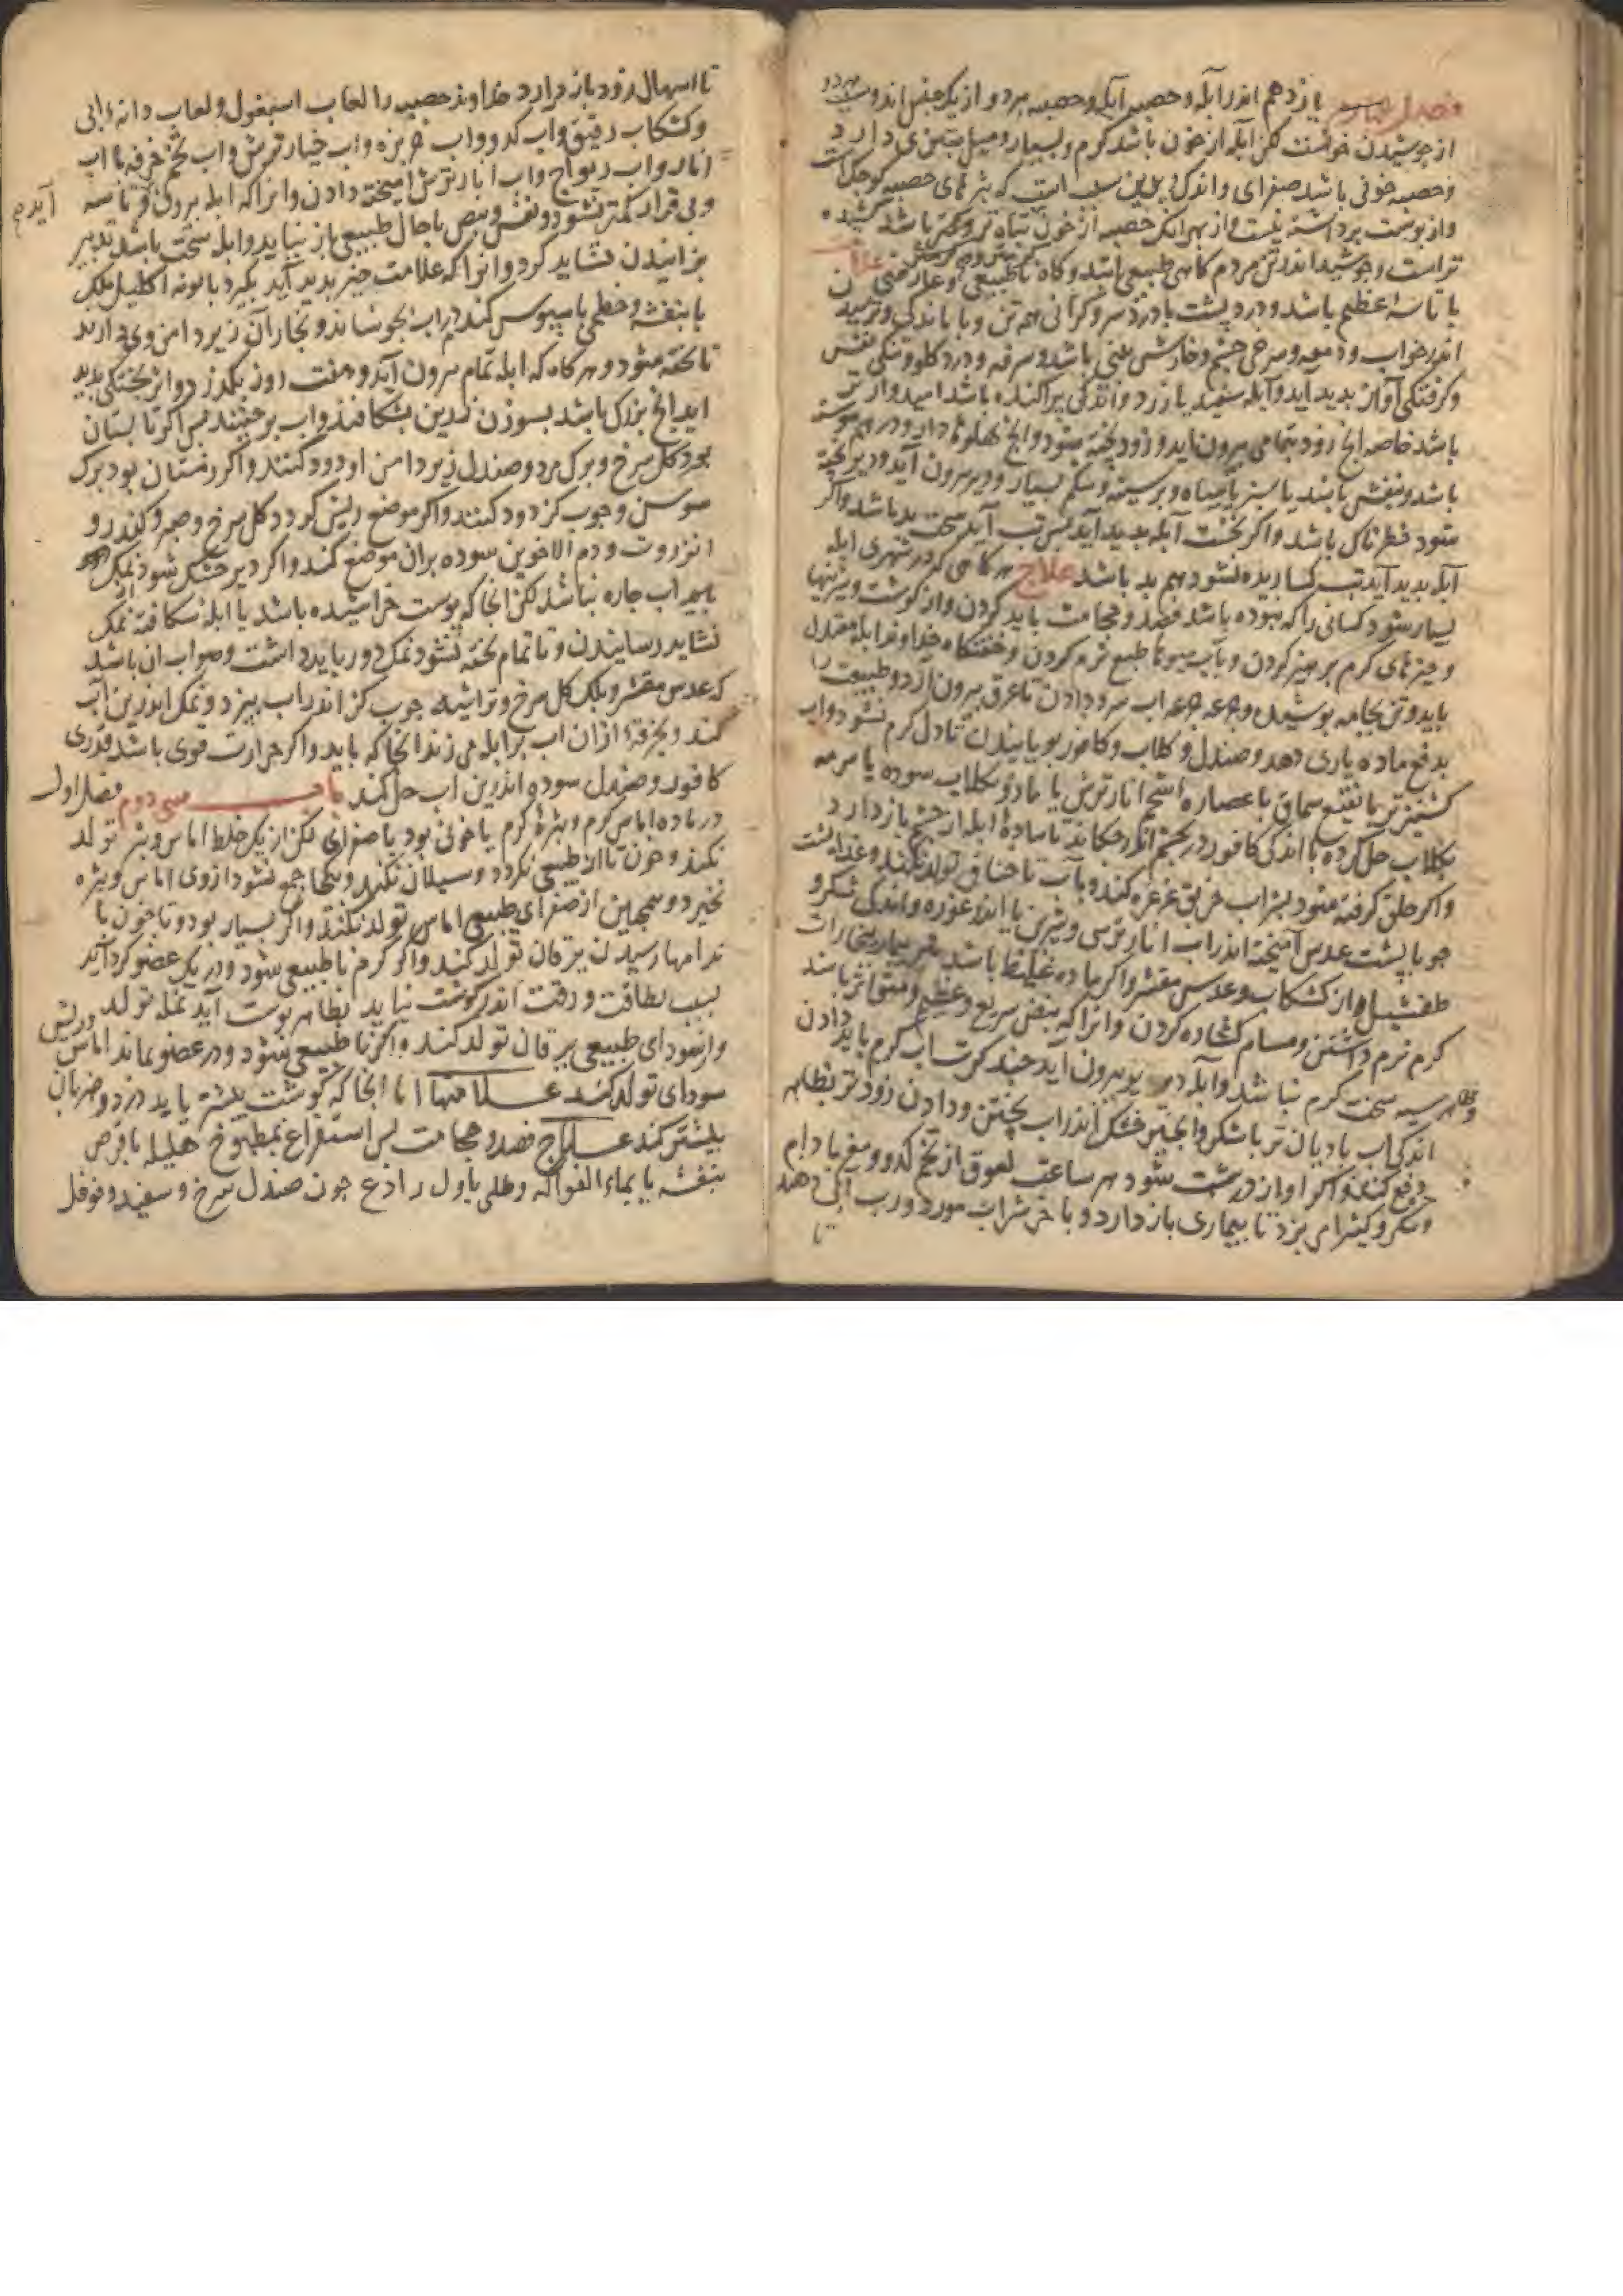 یازدهم اندر آبله و حصبه آبله و حصبه هر دو از یک جنس اند و سبب هر دو
از جوشیدن خونست لکن آبله از خون باشد گرم و بسیار و میل بتری دارد
و حصبه خونی باشد صفرای و اندک و بدین سبب است که بثرهای حصبه کوچک است
و از پوست برداشته نیست و از بهر انک حصبه از خون تباه تر و کمتر باشد
تر است و جوشیدن اندر تن مردم کاهی طبیعی باشد و کاه ناطبیعی
با تاسه عظیم باشد و درد پشت با درد سر و کرانی همه تن و با اندکی و ترسیدن
اندر خواب و دمعه و سرخی چشم و خارش بینی باشد و سرفه و درد کلو و تنکی نفس
و کرفتکی آواز پدید آید و آبله سفید یا زرد و اندکی پراکنده باشد امیدوارتر
باشد خاصه انج زود بتمامی بیرون اید و زود پخته شود و انج پهلوها دارد و در هم پیوسته
باشد و بنفش باشد یا سبز یا سیاه و بر سینه و شکم بسیار و دیر بیرون آید و دیر پخته
شود خطرناک باشد و اگر نخست آبله پدید آید پس تب آید سخت بد باشد و اگر
آبله پدید آید تب کساریده نشود هم بد باشد علاج هر کاهی که در شهری ابله
بسیار شود کسانی را که نبوده باشد فصد و حجامت باید کردن و از کوشت و شیرینیها
و چیزهای کرم پرهیز کردن و بآب میوها طبع نرم کردن و خفتنکاه خداوند ابله معتدل
باید و تن بجامه پوشیدن و جرعه جرعه اب سرد دادن تا عرق بیرون آرد و طبیعت را
بدفع ماده یاری دهد و صندل و کلاب و کافور بویانیدن تا دل کرم نشود و اب
کشنیز تر یا نقیع سماق یا عصاره شحم انار ترش یا مازو بکلاب سوده یا سرمه
بکلاب حل کرده با اندکی کافور در چشم اندر چکاند تا ماده ابله از چشم باز دارد
و اکر حلق کرفته شود بشراب خرنوب غرغره کنند و بآب تا خناق تولد نکند و غذا پست
جو یا پست عدس آمیخته اندر اب انار ترش و شیرین یا اندر غوره و اندکی شکر و
طفشیل از کشکاب و عدس مقشر و اکر ماده غلیظ باشد بخارات
کرم نرم داشتن و مسام کشاده کردن و انرا که نبض سریع و عظیم و متواتر باشد
سخت کرم نباشد و آبله دیر بیرون آید چند کرت اب کرم باید دادن
اندکی اب بادیان تر با شکر و انجیر خشک اندر اب پختن و دادن زودتر بظاهر
دفع کند و اکر اواز درشت شود هر ساعت لعوق از تخم کدو و مغز بادام
و شکر و کثیرا می پزد تا بیماری باز دارد و باخر شراب مورد و رب ابی دهند
تا
تا اسهال زود باز دارد خداوند حصبه را لعاب اسبغول و لعاب دانه ابی
و کشکاب رقیق و اب کدو و اب خربزه و اب خیار ترش و اب تخم خرفه با اب
انار و اب ریواج و اب انار ترش امیخته دادن و انرا که ابله بیرون و تاسه
و بی قراری کمتر نشود و نفس و نبض با حال طبیعی باز نیاید و ابله سخت باشد تدبیر
آید
پزانیدن نشاید کرد و انرا که علامت خیر پدید آید بکیرد بابونه اکلیل ملک
یا بنفشه و خطمی یا سپوس کندم در اب بجوشاند و بخار آن زیر دامن وی دارند
تا پخته شود و هر کاه که ابله تمام بیرون آید و هفت روز بکذرد و اثر پختکی پدید
اید انج بزرک باشد بسوزن زرین بشکافند و اب برچینند پس اکر تابستان
بود کل سرخ و برک مورد و صندل زیر دامن او دود کنند و اکر زمستان بود برک
سوسن و چوب کز دود کنند و اکر موضع ریش کردد کل سرخ و صبر و کندر و
انزروت و دم الاخوین سوده بران موضع کنند و اکر دیر خشک شود نمک
اب چاره نباشد لکن انجا که پوست خراشیده باشد یا ابله شکافته نمک
نشاید رسانیدن و تا تمام پخته نشود نمک دور باید داشت و صواب ان باشد
که عدس مقشر و برک کل سرخ و تراشیه چوب کز اندر اب بپزد و نمک اندرین آب
کند و بخرقه ازان اب بر ابله می زند انجا که باید و اکر حرارت قوی باشد قدری
کافور و صندل سوده اندرین اب حل کند باب سی دوم فصل اول
در ماده اماس کرم و بثره کرم یا خونی بود یا صفرای لکن از یک خلط اماس و بثر تولد
نکند و خون تا از طبیعی نکردد و سیلان نکند و یکجا جمع نشود از وی اماس و بثره
نخیزد و همچنین از صفرای طبیعی اماس تولد نکند و اکر بسیار بود و تا خون با
ندامها رسیدن یرقان تولد کند و اکر کرم ناطبیعی شود و در یک عضو کرد آید
بسبب لطافت و رقت اندر کوشت نیاید بظاهر پوست آید نمله تولد
و از سودای طبیعی یرقان تولد کند و اکر ناطبیعی شود و در عضو بماند اماس
و ریش
سودای تولد کند علامتها انا انجا که کوشت بیشتر باید درد و ضربان
بیشتر کند علاج فصد و حجامت پس استفراغ بمطبوخ هلیله یا قرص
بنفشه یا بماء الفواکه و طلی باول رادع چون صندل سرخ و سفید و فوفل